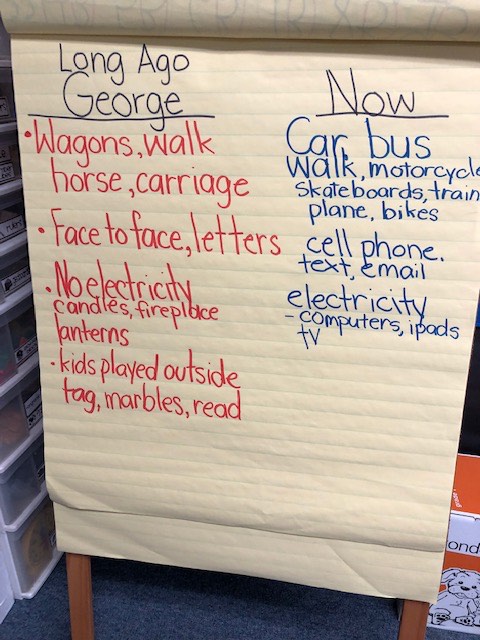 Long Ago
George
• Wagons, walk
horse, carriage
• Face to face, letters
• No electricity
candles, fireplace
lanterns
• kids played outside
tag, marbles, read
Now
Car, bus
walk, motorcycle
skateboards, train
plane, bikes
cell phone.
text, email
electricity
- computers, ipads
TV
ond